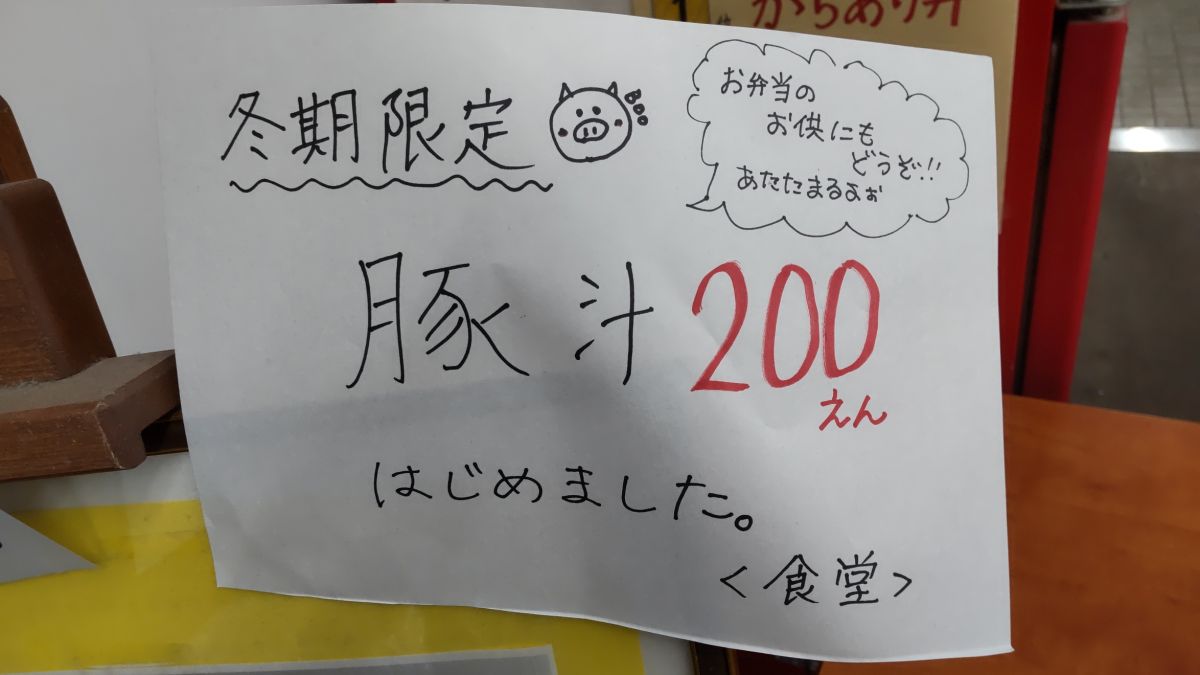 からあげ丼
冬期限定
Boo
お弁当の
お供にも
どうぞ!!
あたたまるよぉ
豚汁 200
えん
はじめました。
<食堂>